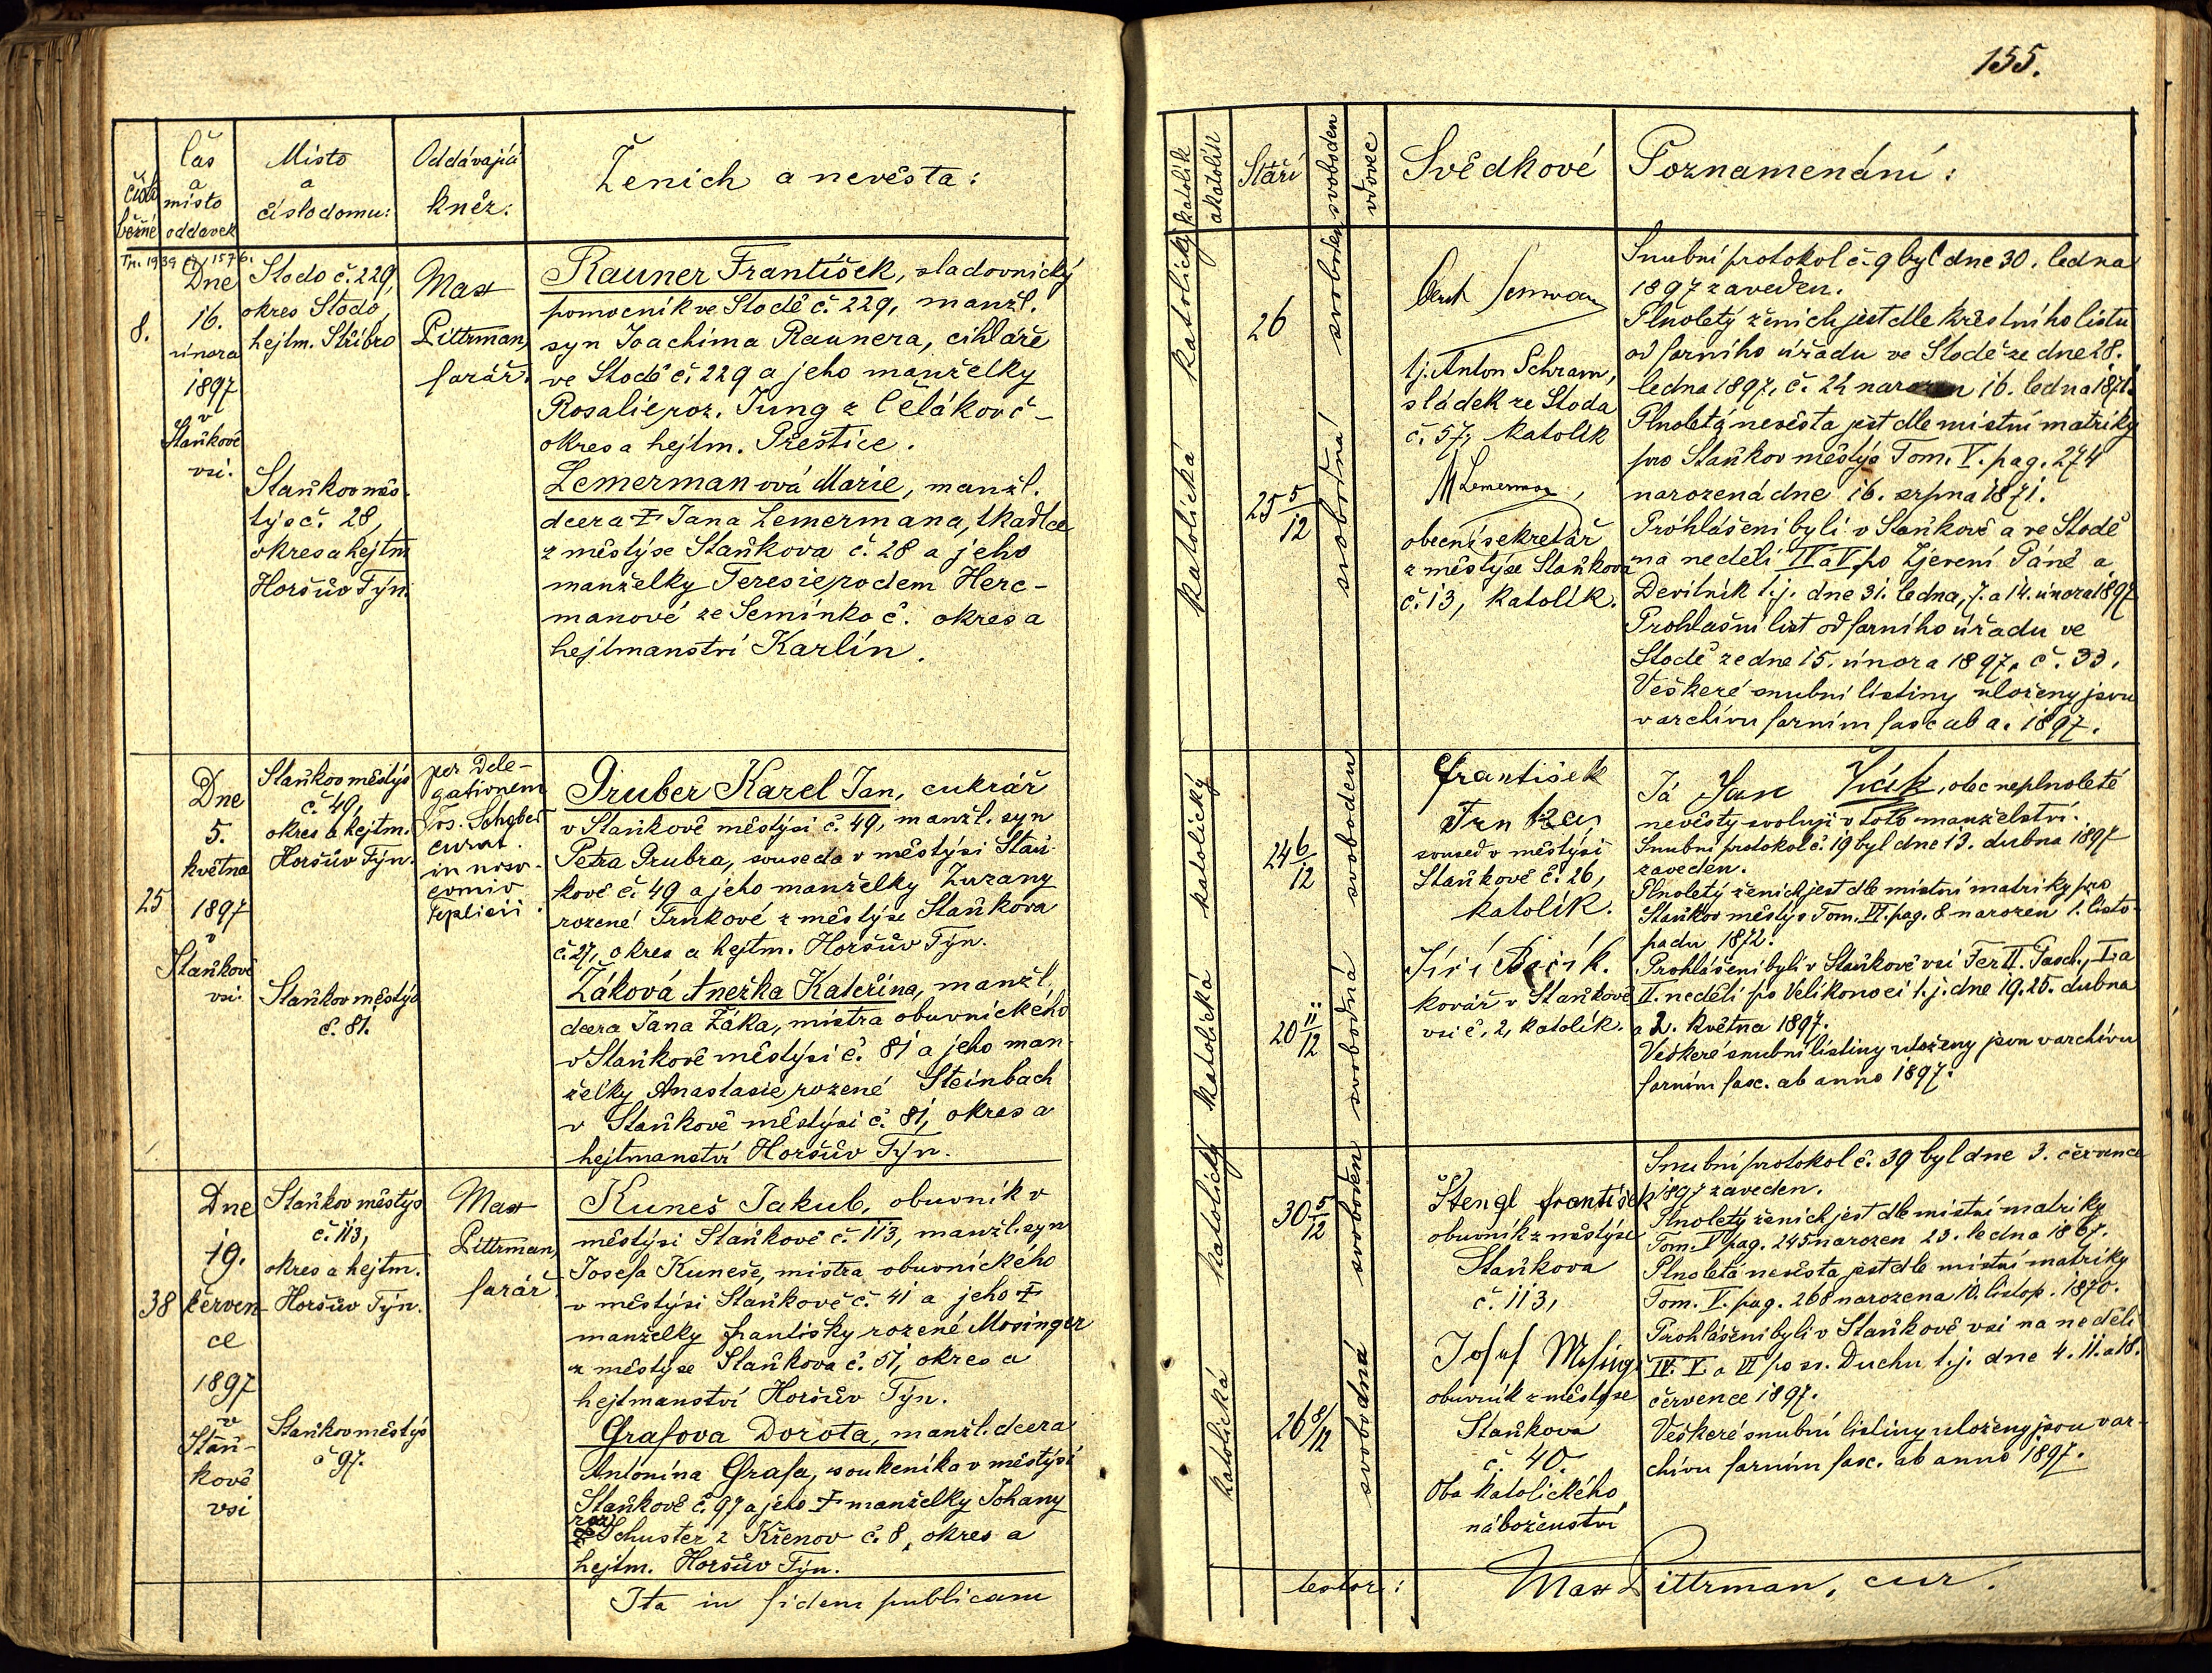 155.
Číslo
běžné
Čas
a
místo
oddavek
Místo
a
číslo domu:
Oddávající
kněz:
Ženich a nevěsta:
katolík
akatolík
Stáří
svoboden
vdovec
Svědkové
Poznamenání:
8.
Dne
16.
února
1897
v
Staňkově
vsi.
Stodo č. 229,
okres Stodo,
hejtm. Stříbro
Staňkov měs-
týs č. 28,
okres a hejtm
Horšův Týn.
Max
Pittrman,
farář.
Rauner František, sladovnický
pomocník ve Stodě č. 229, manžl.
syn Joachima Raunera, cihláře
ve Stodě č. 229 a jeho manželky
Rosalie roz. Jung z
okres a hejtm. Přeštice.
Lemermanová Marie, manžl.
dcera † Jana Lemermana, tkadlce
z městýse Staňkova č. 28 a jeho
manželky Teresie rodem Herc-
manové ze Semínko č. okres a
hejtmanství Karlín.
katolický
katolická
26
25 5/12
svoboden
svobodná
tj. Anton Schram,
sládek ze Stoda
č. 57, katolík
M Lemerman,
obecní sekretář
z městýse Staňkova
č. 13, katolík.
Snubní protokol č. 9 byl dne 30. ledna
1897 zaveden.
Plnoletý ženich jest dle křestního listu
od farního úřadu ve Stodě ze dne 28.
ledna 1897, č. 24 narozen 16. ledna 1871.
Plnoletá nevěsta jest dle místní matriky
pro Staňkov městýs Tom. V. pag. 274
narozená dne 16. srpna 1871.
Prohlášeni byli v Staňkově a ve Stodě
na neděli IV a V po Zjevení Páně a
Devítník t.j. dne 31. ledna, 7. a 14. února 1897
Prohlašní list od farního úřadu ve
Stodě ze dne 15. února 1897, č. 33.
Veškeré snubní listiny uloženy jsou
v archivu farním fasc ab a. 1897.
25
Dne
5.
května
1897
v
Staňkově
vsi.
Staňkov městýs
č. 49,
okres a hejtm.
Horšův Týn.
Staňkov městýs
č. 81.
per dele-
gationem
Jos.
curat.
in noso-
comio
Teplicii.
Gruber Karel Jan, cukrář
v Staňkově městýsi č. 49, manžl. syn
Petra Grubra, souseda v městýsi Staň-
kově č. 49 a jeho manželky Zuzany
rozené Trnkové z městýse Staňkova
č. 27, okres a hejtm. Horšův Týn.
Žáková Anežka Kateřina, manžl.
dcera Jana Žáka, mistra obuvnického
v Staňkově městýsi č. 81 a jeho man-
želky Anastasie rozené Steinbach
v Staňkově městýsi č. 81, okres a
hejtmanství Horšův Týn.
katolický
katolická
24 6/12
20 11/12
svoboden
svobodná
František
Trnka
soused v městýsi
Staňkově č. 26,
katolík.
Jiří
kovář v Staňkově
vsi č. 2, katolík.
Já Jan Žák, otec neplnoleté
nevěsty svoluji v toto manželství.
Snubní protokol č. 19 byl dne 13. dubna 1897
zaveden.
Plnoletý ženich jest dle místní matriky pro
Staňkov městýs Tom. VI. pag. 8 narozen 1. listo-
padu 1872.
Prohlášeni byli v Staňkově vsi Fer II. Pasch., I. a
II. neděli po Velikonoci t.j. dne 19. 25. dubna
a 2. května 1897.
Veškeré snubní listiny uloženy jsou v archivu
farním fasc. ab anno 1897.
38
Dne
19.
červen-
ce
1897
v
Staň-
kově
vsi
Staňkov městýs
č. 113,
okres a hejtm.
Horšův Týn.
Staňkov městýs
č 97.
Max
Pittrman,
farář
Kuneš Jakub, obuvník v
městýsi Staňkově č. 113, manžl. syn
Josefa Kuneše, mistra obuvnického
v městýsi Staňkově č. 41 a jeho †
manželky Františky rozené Mosinger
z městýse Staňkova č. 51, okres a
hejtmanství Horšův Týn.
Grafova Dorota, manžl. dcera
Antonína Grafa, soukeníka v městýsi
Staňkově č. 97 a jeho † manželky Johany
roz
Schuster z Křenov č. 8, okres a
hejtm. Horšův Týn.
katolický
katolická
30 5/12
26 8/12
svoboden
svobodná
Štengl František
obuvník z městýse
Staňkova
č. 113,
Josef
obuvník z městýse
Staňkova
č. 40
Oba katolického
náboženství
Snubní protokol č. 39 byl dne 3. července
1897 zaveden.
Plnoletý ženich jest dle místní matriky
Tom. V pag. 245 narozen 23. ledna 1867.
Plnoletá nevěsta jest dle místní matriky
Tom. V. pag. 268 narozena 10. listop. 1870.
Prohlášeni byli v Staňkově vsi na neděli
IV. V. a VI po sv. Duchu t.j. dne 4. 11. a 18.
července 1897.
Veškeré snubní listiny uloženy jsou v ar-
chivu farním fasc. ab anno 1897.
Ita in fidem publicam
testor: Max Pittrman, cur.